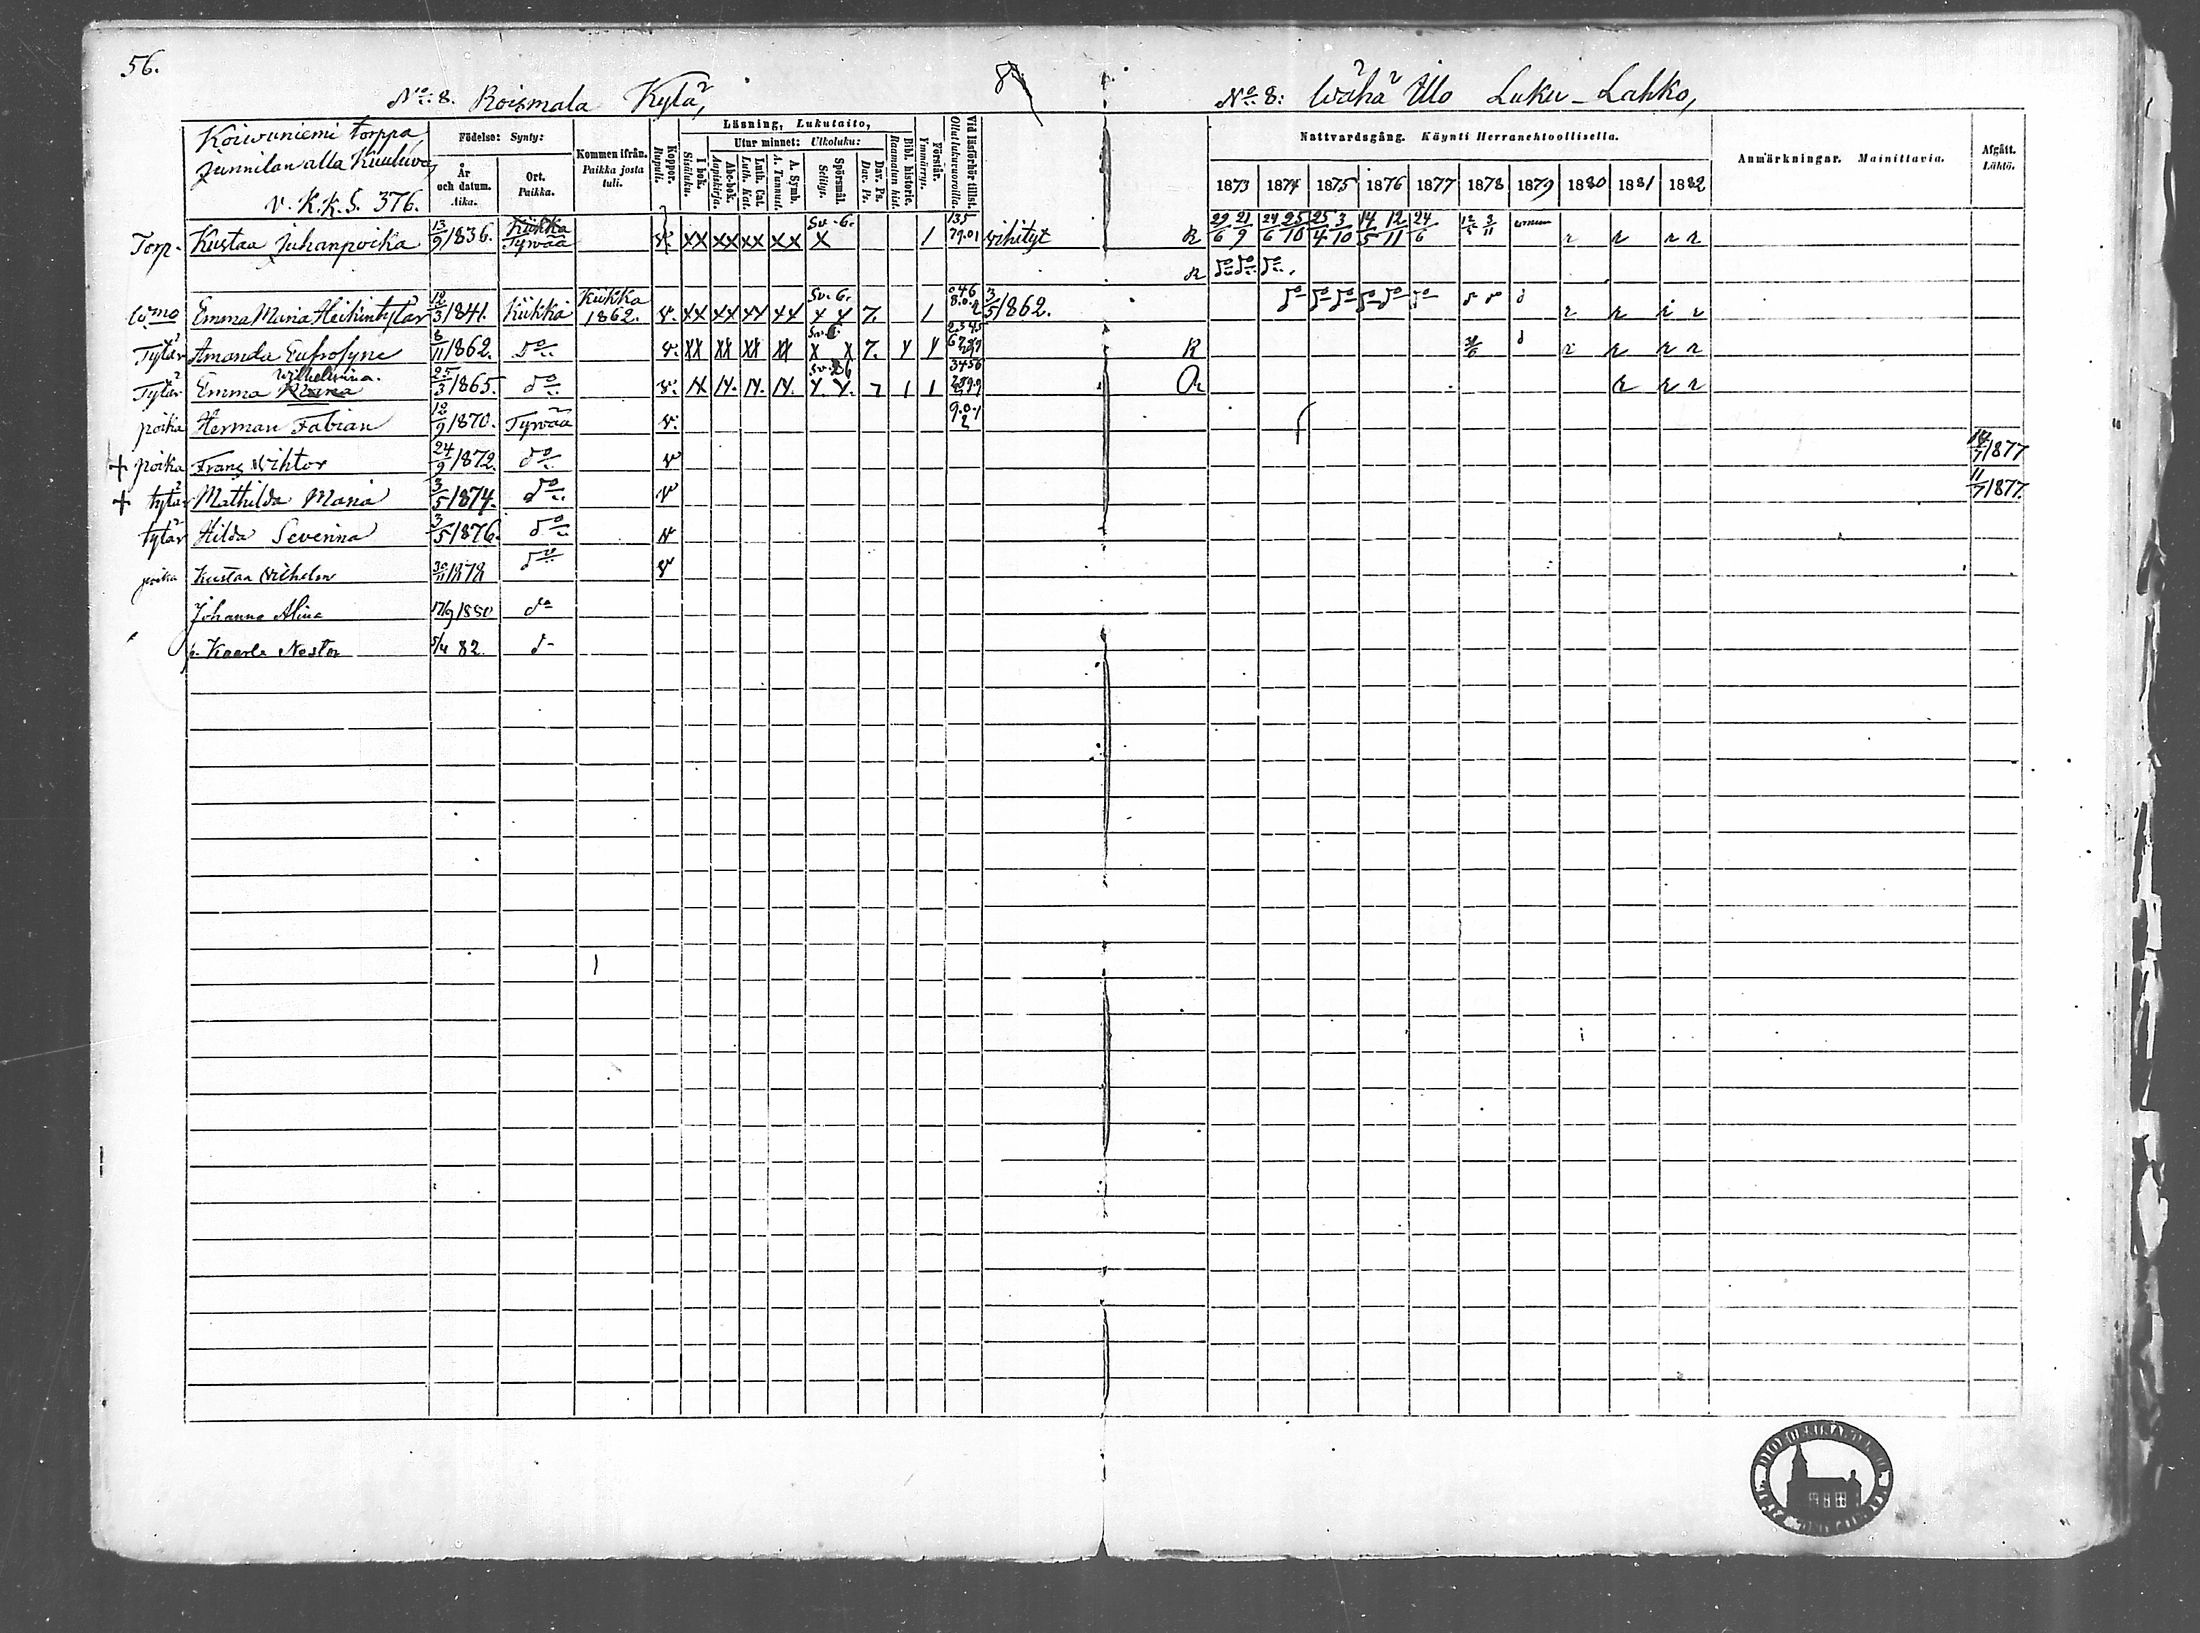 56.
No: 8. Roismala Kylä,
No: 8: Wähä Ulo Luku-Lahko,
Koivuniemi torppa
Junnilan alla Kuuluva,
v. K.k.S. 376.
Födelse: Synty:
År och datum. Aika.
Ort. Paikka.
Kommen ifrån. Paikka josta tuli.
Koppor. Rupuli.
Läsning, Lukutaito,
I bok. Sisäluku.
Utur minnet: Ulkoluku:
Abc-bok. Aapiskirja.
Luth. Cat. Luth. Kat.
A. Symb. A. Tunnust.
Spörsmål. Selitys.
Dav. Ps. Dav. Ps.
Bibl. historie. Raamatun hist.
Förstår. Ymmärrys.
Vid läsförhör tillst. Ollut lukuvuoroilla.
Nattvardsgång. Käynti Herranehtoollisella.
1873 1874 1875 1876 1877 1878 1879 1880 1881 1882
Anmärkningar. Mainittavia.
Afgått. Lähtö.
Torp. Kustaa Juhanpoika 13/9 1836. Kiikka Tyrvää v. xx xx xx xx Sv. 6. x 1 135 79.01 vihityt R 29/6 21/9 24/6 25/10 25/4 3/10 14/5 12/11 24/6 r r r r
R do do do
Waimo Emma Maria Heikintytär 12/3 1841. Kiikka Kiikka 1862. v. xx xx xx xx Sv. 6. x x 7. 1 046 8.0.2 3/5 1862. do do do do do do d do d r r r r
Tytär Amanda Eufrosyne 8/11 1862. Do v. xx xx xx xx Sv. 6. x x 7. R d r r r r
Tytär Emma Wilhelmina. Maria 25/3 1865. do v. 7 1 1 3456 R r r r
poika Herman Fabian 12/9 1870. Tyrvää v. 9.0.1 2
+ poika Frans Wihtor 24/9 1872. do v 1877
+ tytär Mathilda Maria 3/5 1874. do v 11/7 1877.
tytär Hilda Severina 3/5 1876. do v
poika Kustaa Vilhelm 30/11 1878 do v
Johanna Alina 17/9 1880 do
p. Kaarle Nestor 5/4 82. d-